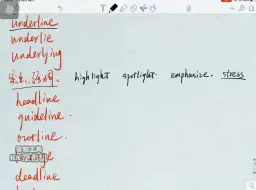 underline
underlie
underlying
highlight spotlight. emphasize. stress
headline
guideline.
outline.
deadline